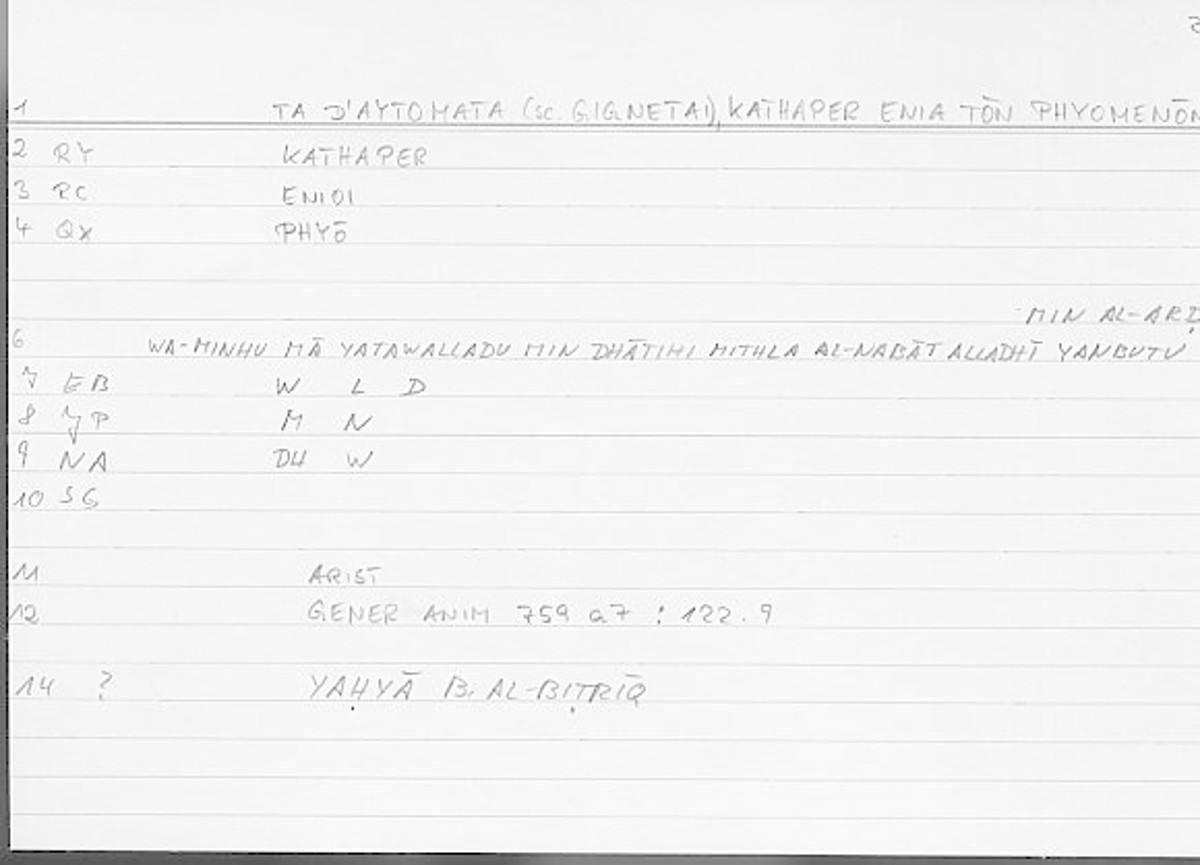 1 TA D'AYTOMATA (SC. GIGNETAI), KATHAPER ENIA TŌN PHYOMENŌN
2 RY KATHAPER
3 RC ENIOI
4 QX PHYŌ
MIN AL-ARḌ
6 WA-MINHU MĀ YATAWALLADU MIN DHĀTIHI MITHLA AL-NABĀT ALLADHĪ YANBUTU
7 EB W L D
8 JP M N
9 NA DH W
10 SG
11 ARIST
12 GENER ANIM 759 a7 : 122.9
14 ? YAḤYĀ B. AL-BIṬRĪQ